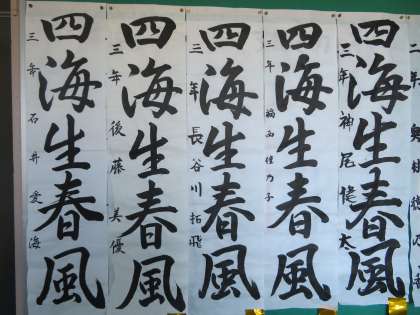 四海生春風
三年 石井愛海
四海生春風
三年 後藤美優
四海生春風
三年 長谷川拓飛
四海生春風
三年
四海生春風
三年 神尾健太